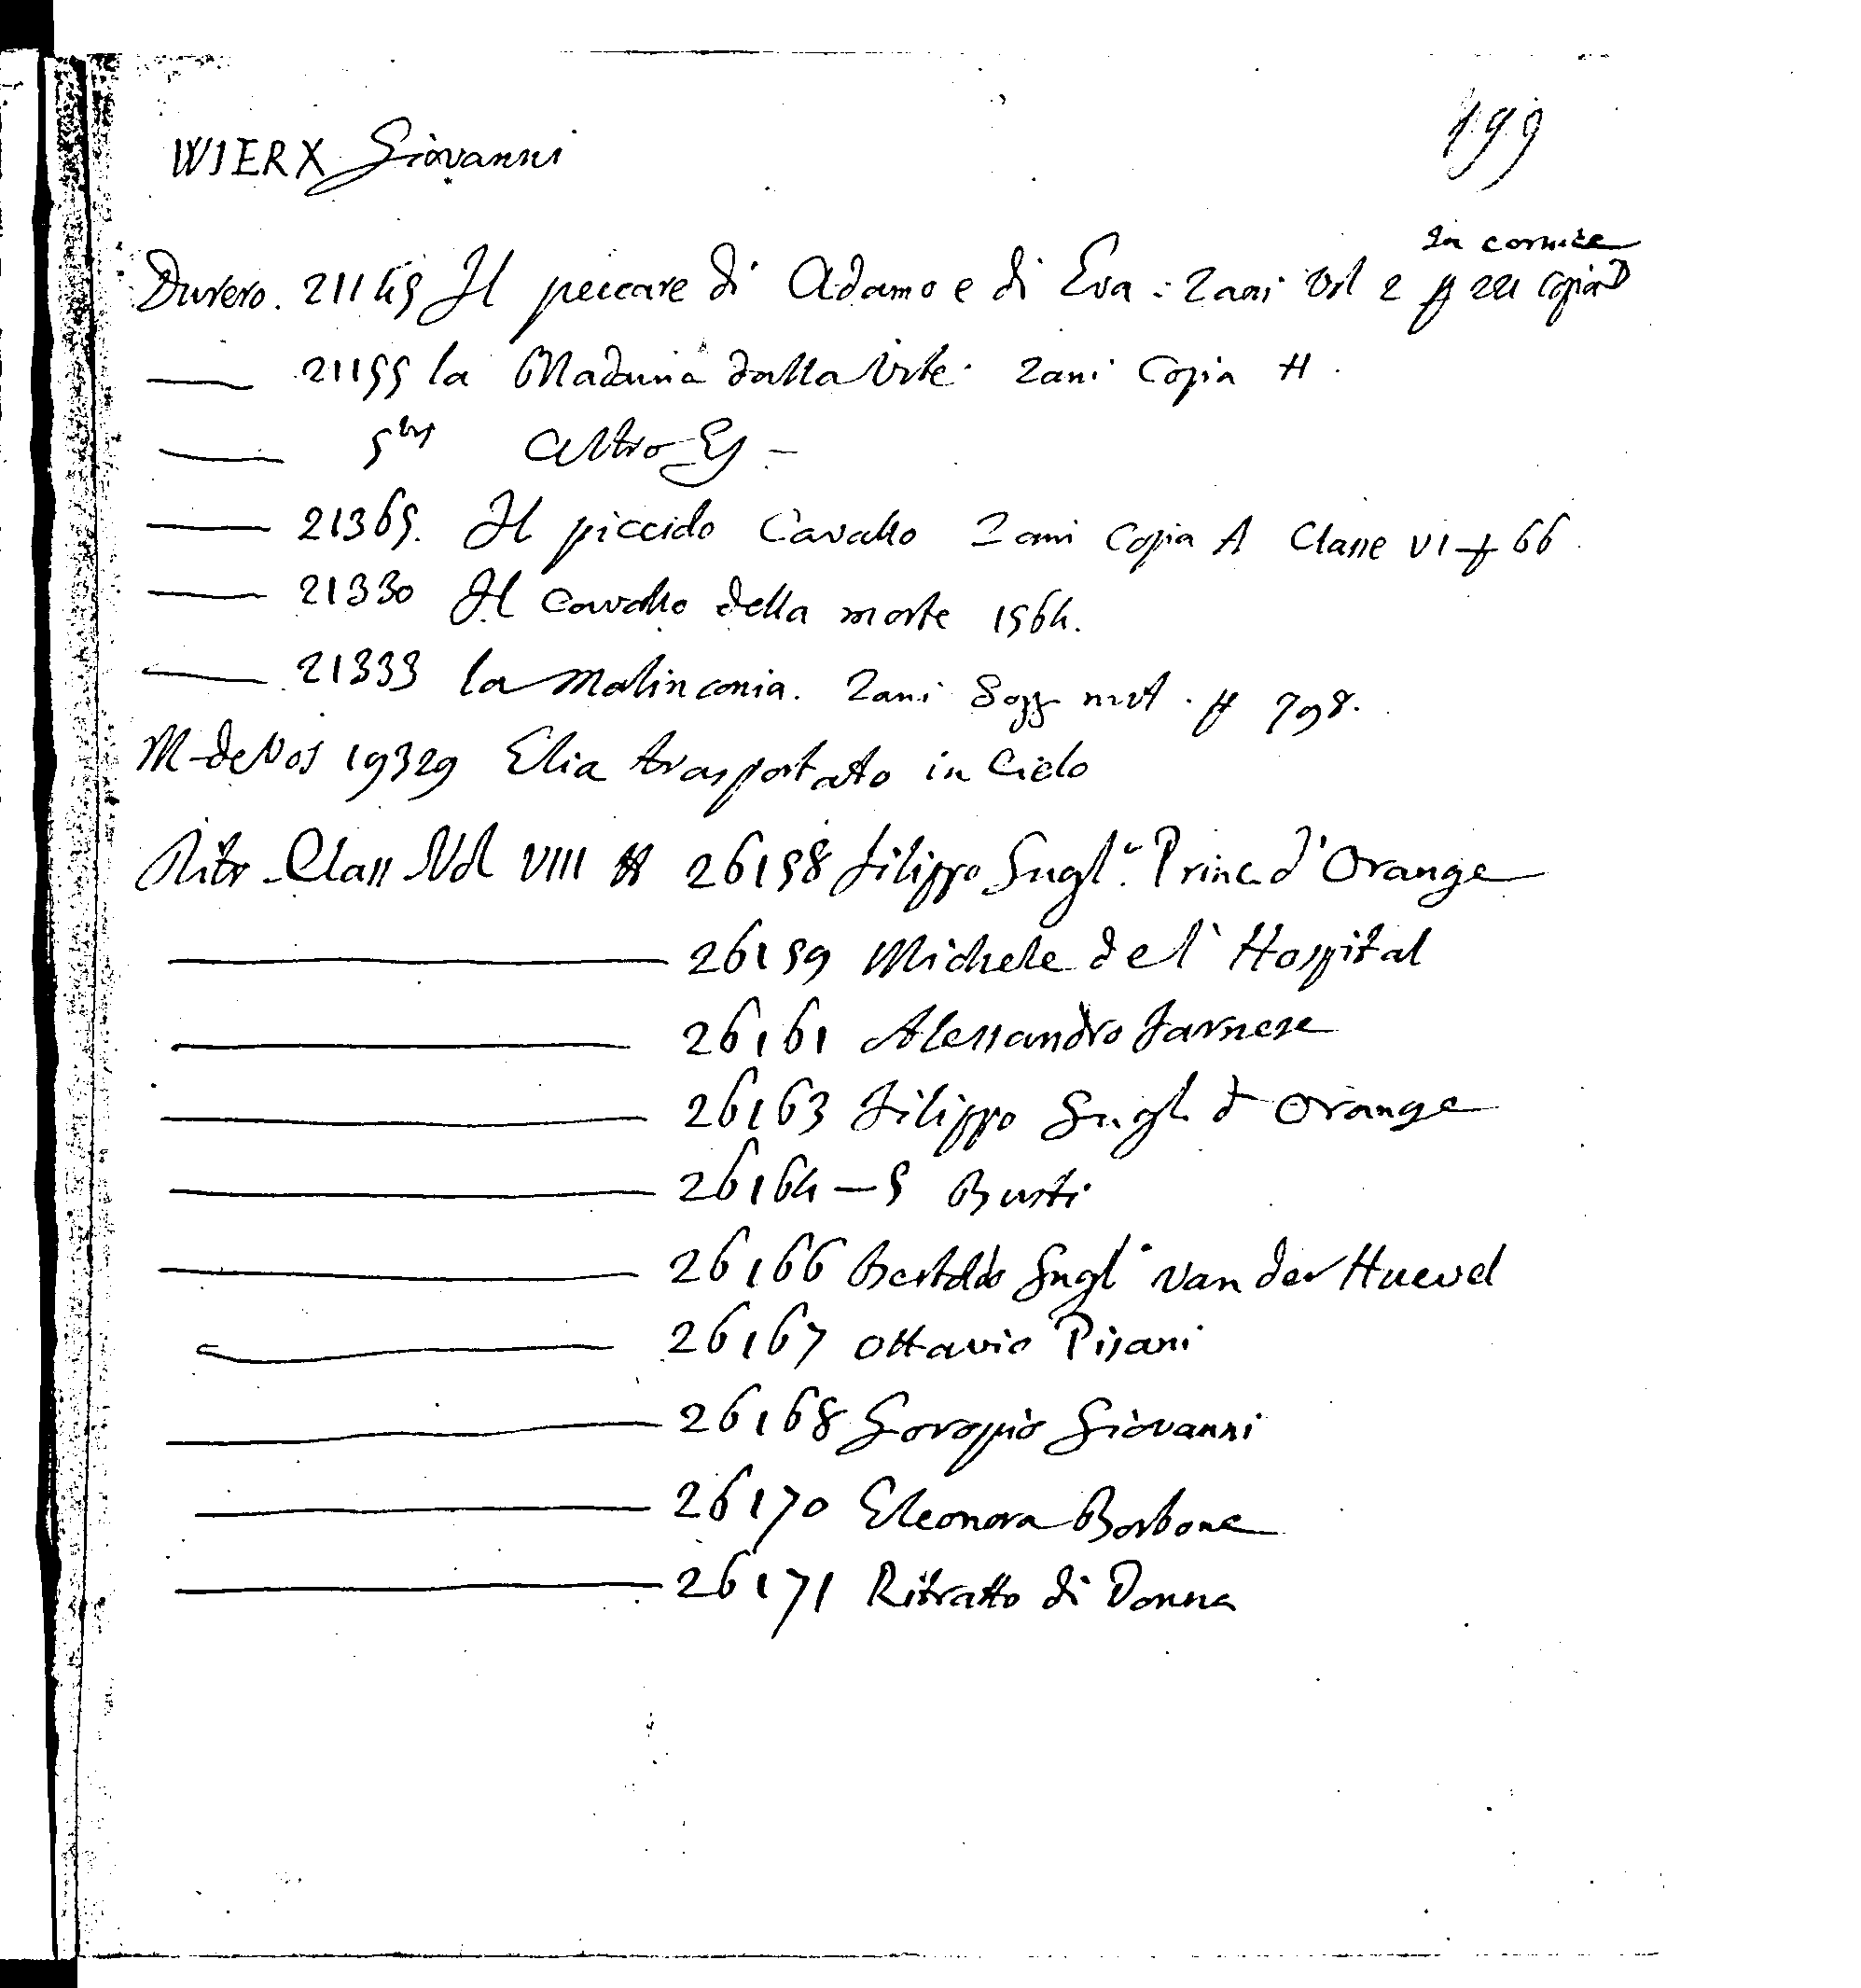 199
WIERX Giovanni
In cornice
Durero. 21145 Il peccare di Adamo e di Eva: Zani Vol 2 p 221 Copia D
21155 la Madonna dalla Zani Copia H.
5 bis Altro Es -
21365. Il piccolo Cavallo Zani Copia A Classe VI f 66
21330 Il Cavallo della morte 1564.
21333 la Malinconia. Zani Sogg mut. p 798.
M-deVos 19329 Elia trasportato in Cielo
Ritr. Class Vol VIII # 26158 Filippo Gugl.º Princ. d'Orange
26159 Michele de l' Hospital
26161 Alessandro Farnese
26163 Filippo Gugl d Orange
26164-5 Busti
26166 Bertoldo Gugl.º Van der Huevel
26167 Ottavio Pisani
26168 Goropio Giovanni
26170 Eleonora Borbone
26171 Ritratto di Donna